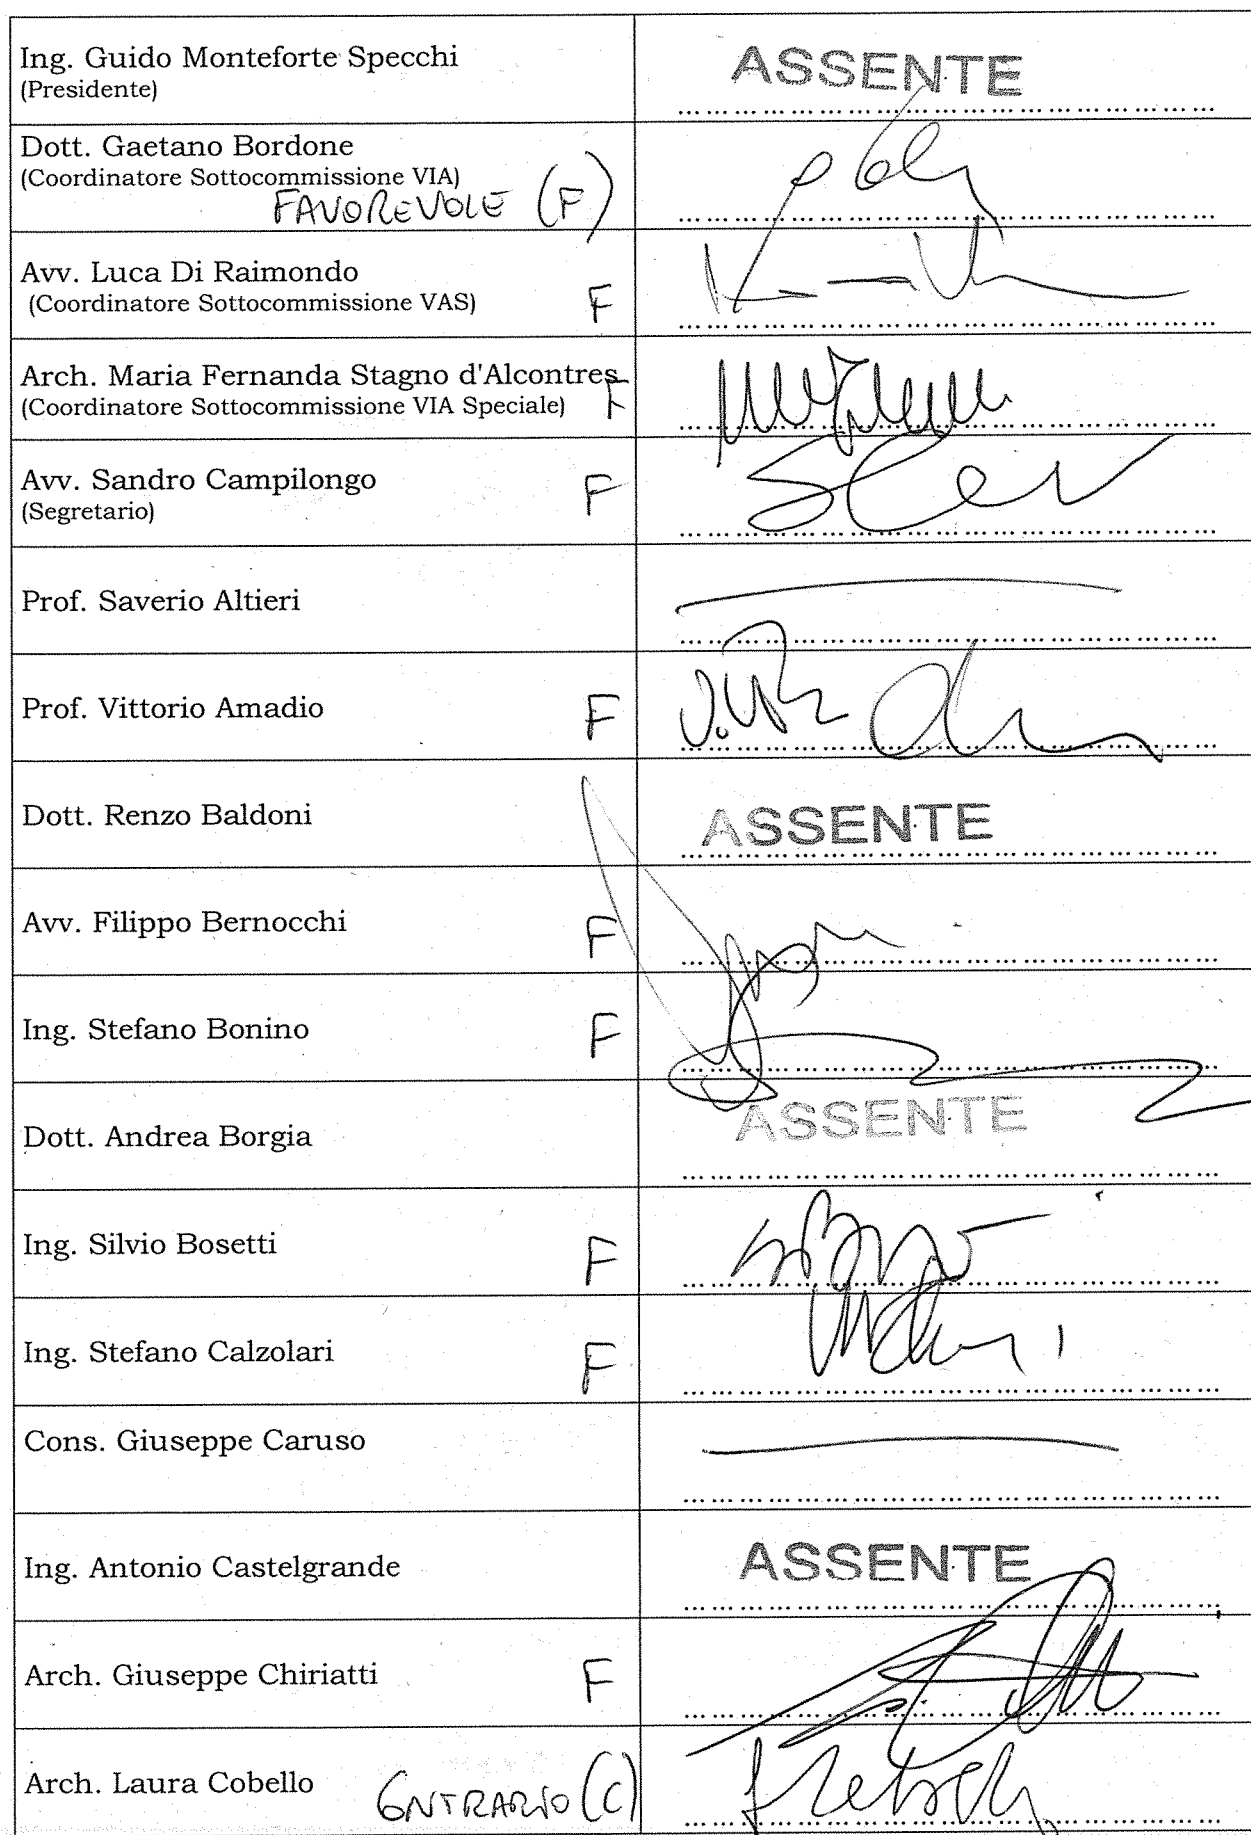 Ing. Guido Monteforte Specchi
(Presidente)
ASSENTE
Dott. Gaetano Bordone
(Coordinatore Sottocommissione VIA)
FAVOREVOLE (F)
Avv. Luca Di Raimondo
(Coordinatore Sottocommissione VAS)
F
Arch. Maria Fernanda Stagno d'Alcontres
(Coordinatore Sottocommissione VIA Speciale)
F
Avv. Sandro Campilongo
(Segretario)
F
Prof. Saverio Altieri
Prof. Vittorio Amadio
F
Dott. Renzo Baldoni
ASSENTE
Avv. Filippo Bernocchi
F
Ing. Stefano Bonino
F
Dott. Andrea Borgia
ASSENTE
Ing. Silvio Bosetti
F
Ing. Stefano Calzolari
F
Cons. Giuseppe Caruso
Ing. Antonio Castelgrande
ASSENTE
Arch. Giuseppe Chiriatti
F
Arch. Laura Cobello
CONTRARIO (C)